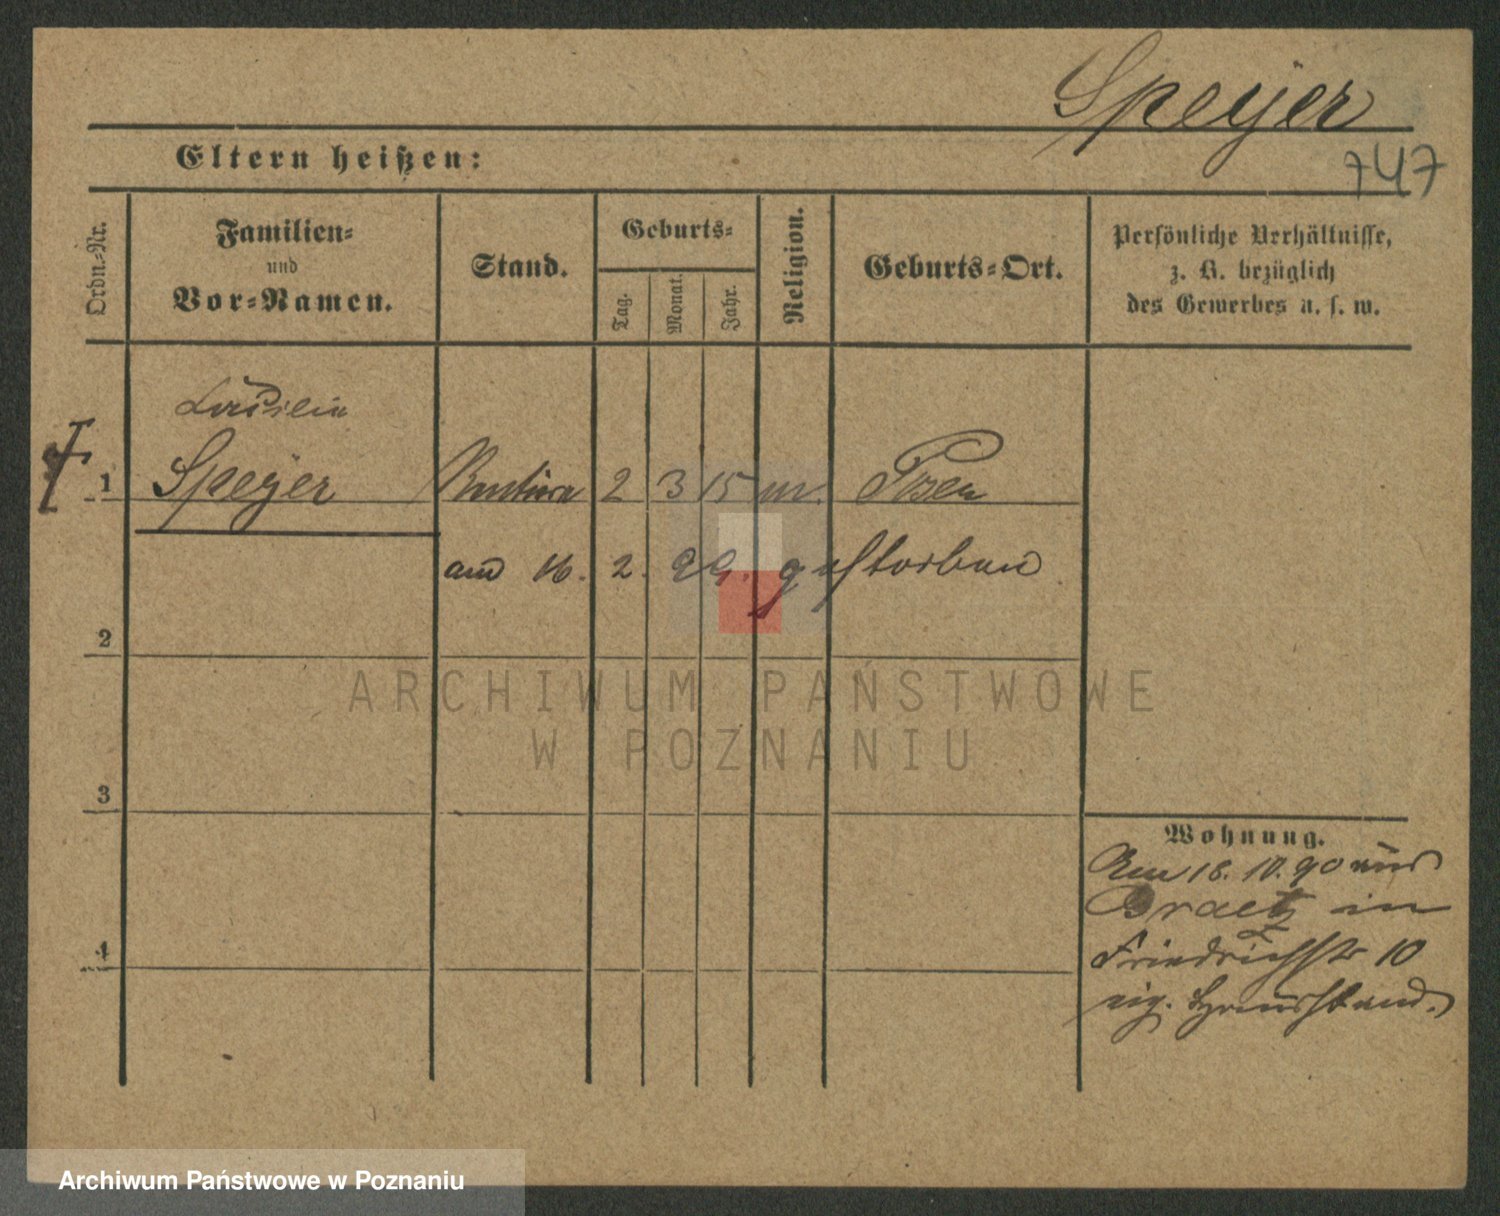 Speyer
747
Eltern heißen:
Ordn.-Nr.
Familien-
und
Vor-Namen.
Stand.
Geburts-
Tag.
Monat.
Jahr.
Religion.
Geburts-Ort.
Persönliche Verhältnisse,
z. B. bezüglich
des Gewerbes u. s. w.
1 Speyer 2 3 15 m. Posen
am 16. 2. 99. gestorben
2
ARCHIWUM PAŃSTWOWE
W POZNANIU
3
Wohnung.
Am 18. 10. 90 aus
Braetz in
4
Friedrichstr 10
eig. Hausstand.
Archiwum Państwowe w Poznaniu